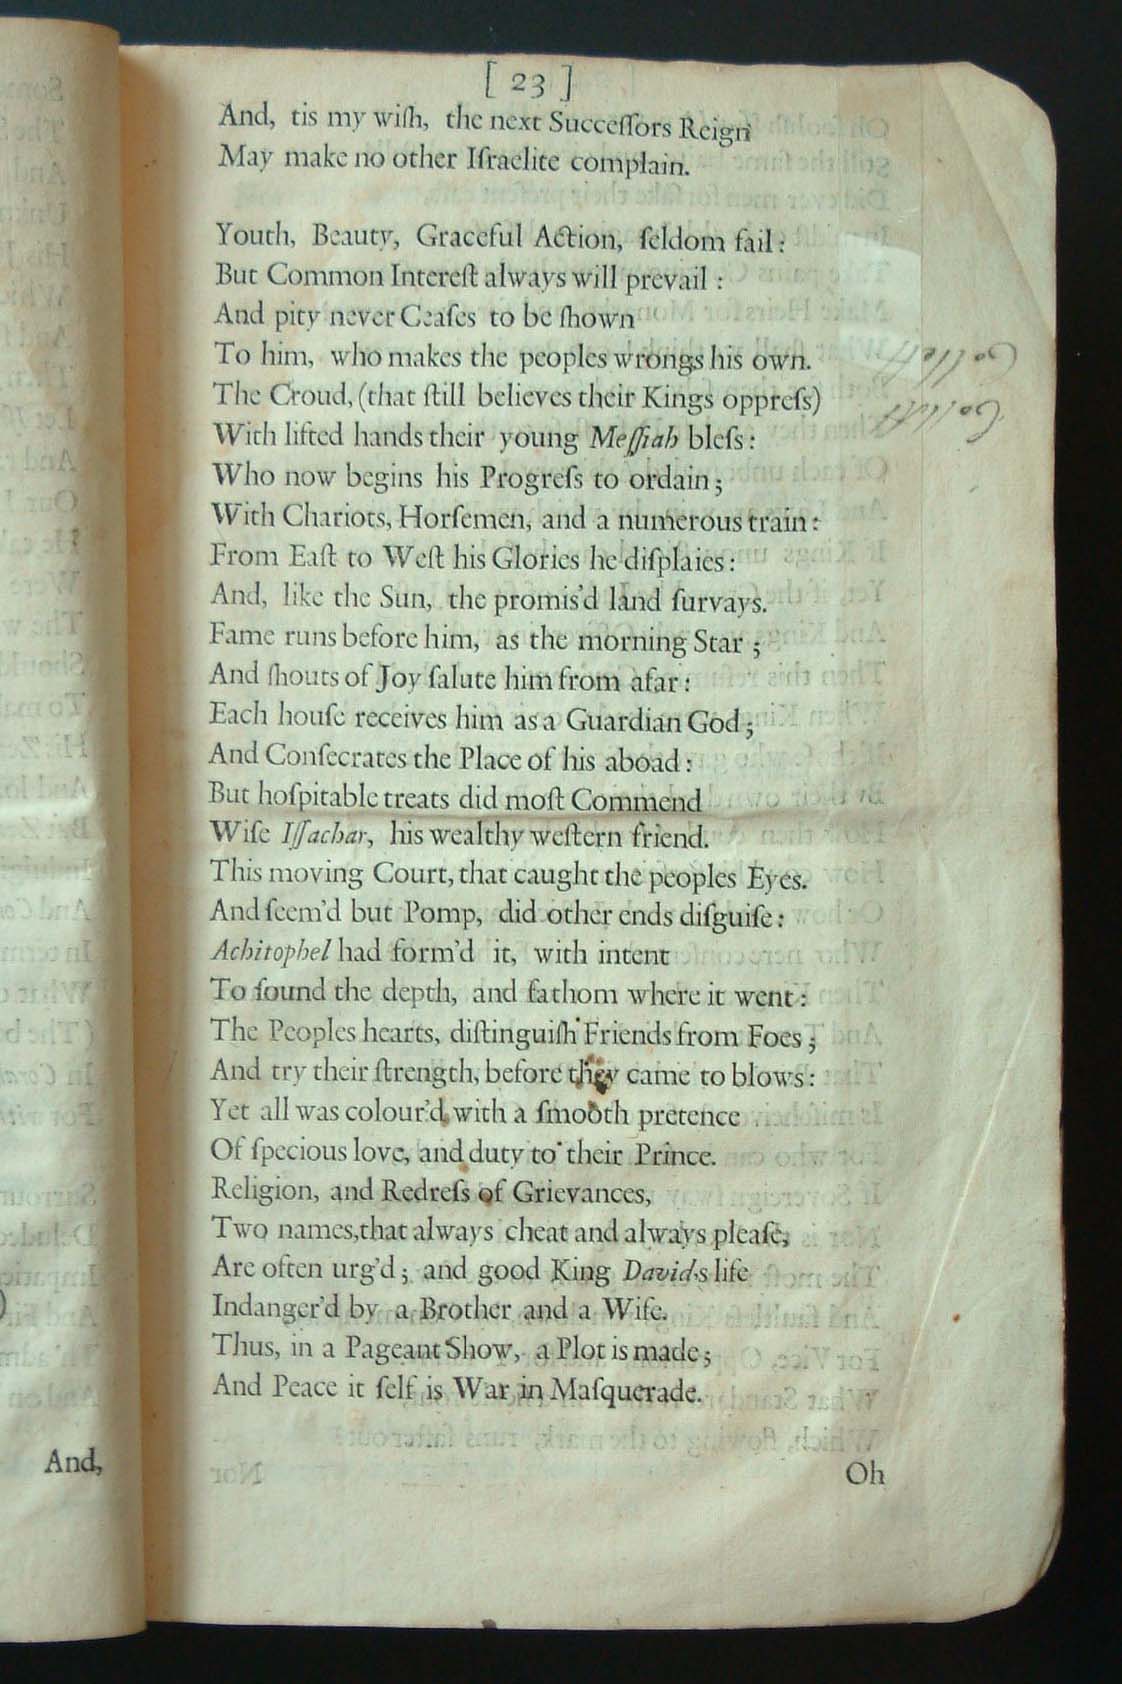 [ 23 ]
And, tis my wiſh, the next Succeſſors Reign
May make no other Iſraelite complain.
Youth, Beauty, Graceful Action, ſeldom fail:
But Common Intereſt always will prevail :
And pity never Ceaſes to be ſhown
To him, who makes the peoples wrongs his own.
The Croud, (that ſtill believes their Kings oppreſs)
With lifted hands their young Meſſiah bleſs:
Who now begins his Progreſs to ordain;
With Chariots, Horſemen, and a numerous train:
From Eaſt to Weſt his Glories he diſplaies:
And, like the Sun, the promis'd land ſurvays.
Fame runs before him, as the morning Star ;
And ſhouts of Joy ſalute him from afar:
Each houſe receives him as a Guardian God;
And Conſecrates the Place of his aboad:
But hoſpitable treats did moſt Commend
Wiſe Iſſachar, his wealthy weſtern friend.
This moving Court, that caught the peoples Eyes.
And ſeem'd but Pomp, did other ends diſguiſe:
Achitophel had form'd it, with intent
To ſound the depth, and fathom where it went:
The Peoples hearts, diſtinguiſh Friends from Foes;
And try their ſtrength, before they came to blows:
Yet all was colour'd with a ſmooth pretence
Of ſpecious love, and duty to their Prince.
Religion, and Redreſs of Grievances,
Two names, that always cheat and always pleaſe,
Are often urg'd; and good King David's life
Indanger'd by a Brother and a Wife.
Thus, in a Pageant Show, a Plot is made;
And Peace it ſelf is War in Maſquerade.
And,
Oh